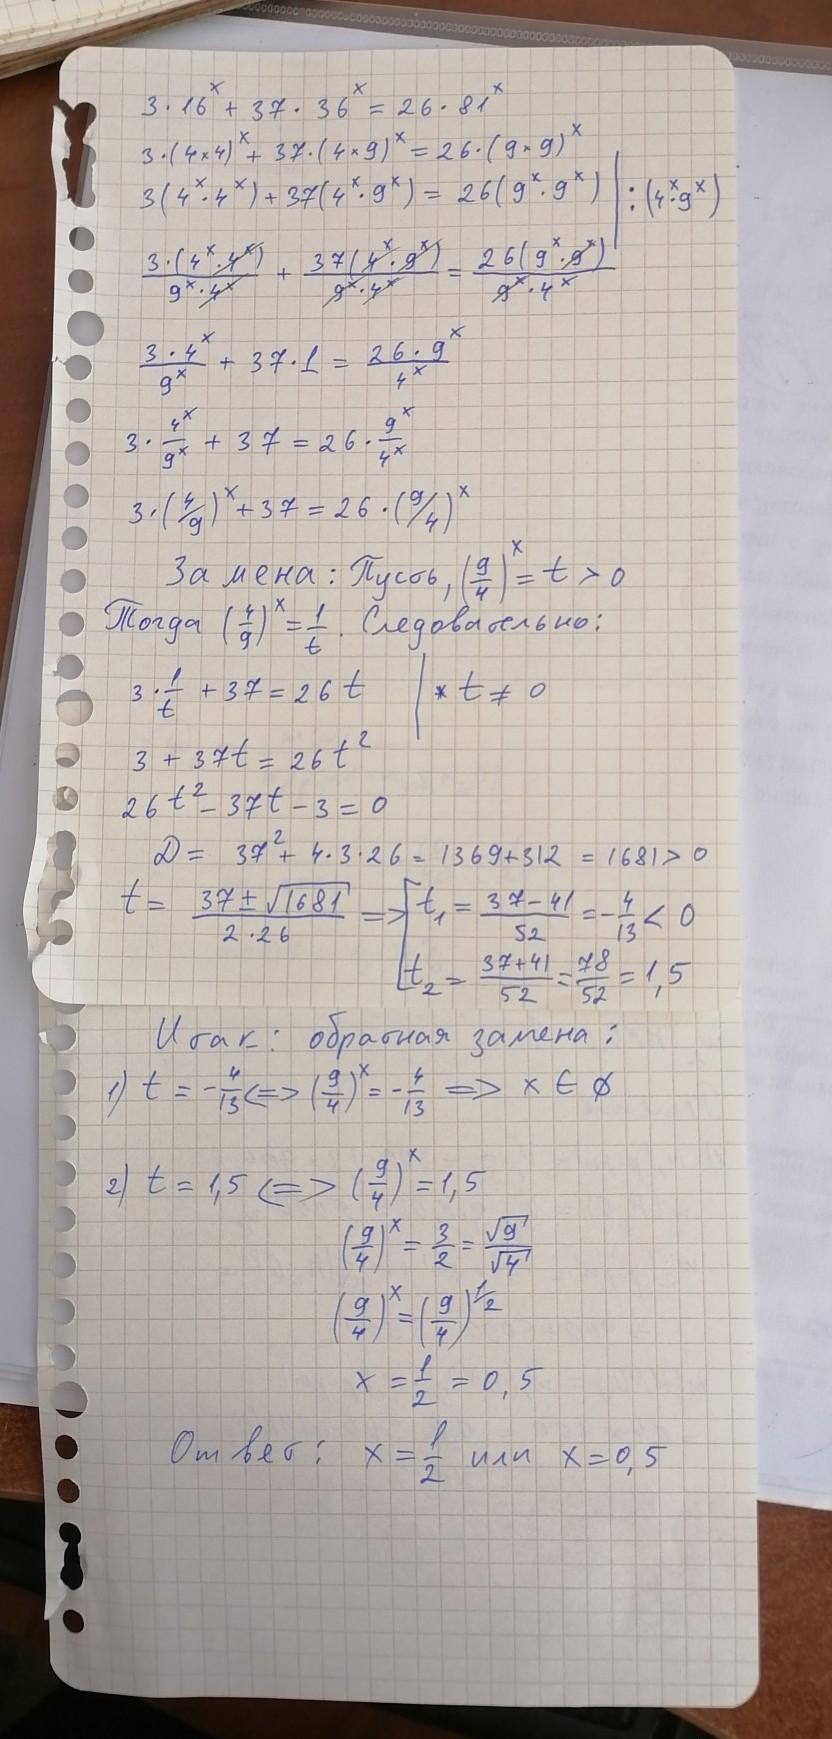 3·16^x + 37·36^x = 26·81^x
3·(4×4)^x + 37·(4×9)^x = 26·(9×9)^x
3(4^x·4^x) + 37(4^x·9^x) = 26(9^x·9^x) | : (4^x·9^x)
3·(4^x·4^x)/(9^x·4^x) + 37(4^x·9^x)/(9^x·4^x) = 26(9^x·9^x)/(9^x·4^x)
3·4^x/9^x + 37·1 = 26·9^x/4^x
3·4^x/9^x + 37 = 26·9^x/4^x
3·(4/9)^x + 37 = 26·(9/4)^x
Замена: Пусть, (9/4)^x = t > 0
Тогда (4/9)^x = 1/t. Следовательно:
3·1/t + 37 = 26t | * t ≠ 0
3 + 37t = 26t^2
26t^2 - 37t - 3 = 0
D = 37^2 + 4·3·26 = 1369+312 = 1681 > 0
t = (37 ± √1681)/(2·26) => [ t₁ = (37-41)/52 = -4/13 < 0
t₂ = (37+41)/52 = 78/52 = 1,5
Итак: обратная замена:
1) t = -4/13 <=> (9/4)^x = -4/13 => x ∈ ∅
2) t = 1,5 <=> (9/4)^x = 1,5
(9/4)^x = 3/2 = √9/√4
(9/4)^x = (9/4)^1/2
x = 1/2 = 0,5
Ответ: x = 1/2 или x = 0,5